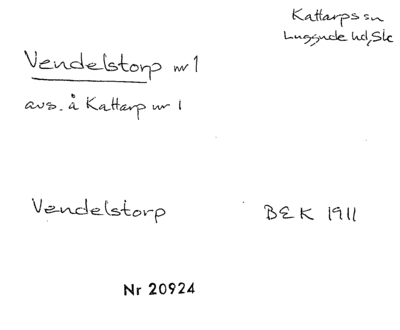 Kattarps sn
Luggude hd, Sk
Vendelstorp nr 1
avs. å Kattarp nr 1
Vendelstorp BEK 1911
Nr 20924